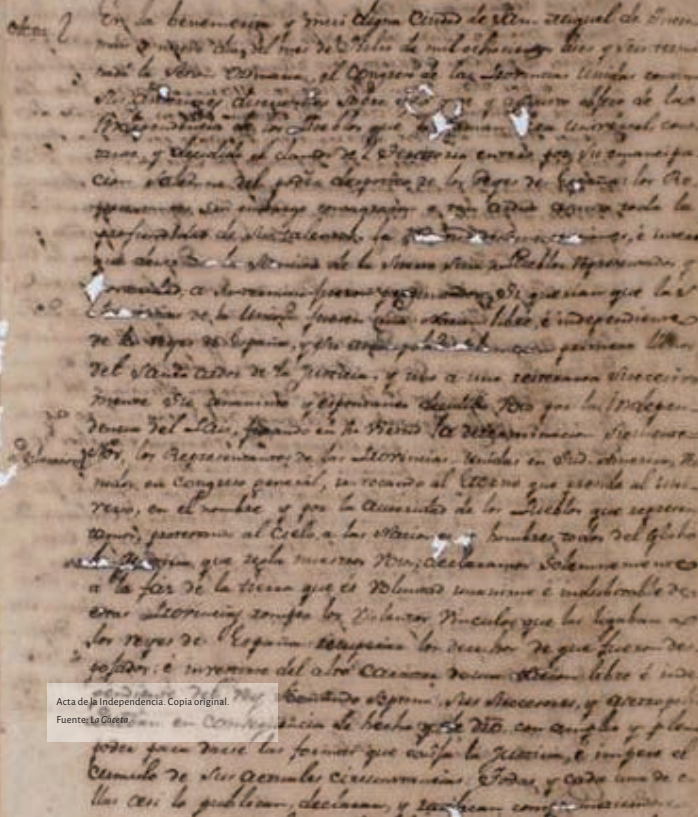 En la benemerita y muy digna Ciudad de San Miguel de Tucu
man a nueve dias del mes de Julio de mil ochocientos dies y seis termi
nada la Sesion ordinaria, el Congreso de las Provincias Unidas continuó
sus anteriores discusiones sobre el grande y augusto objeto de la
Independencia de los Pueblos que lo forman. Era universal cons
tante, y decidido el clamor del Territorio entero por su emancipa
cion solemne del poder despotico de los Reyes de España; los Re
presentantes sin embargo consagraron a tan arduo asunto toda la
profundidad de sus talentos, la
que demanda la Sancion de la Suerte Pueblos representados, y
a su termino fueron preguntados: Si querian que las
Provincias de la Union fuesen una Nacion libre, é independiente
de los reyes de España, y su
del Santo ardor de la Justicia, y uno a uno reiteraron sucesiva
mente su unanime y espontaneo decidido voto por la Indepen
dencia del Pais, fijando en su virtud la determinacion siguiente
Nos, los Representantes de las Provincias Unidas en Sud America, reu
nidos en Congreso general, invocando al Eterno que preside al uni
verso, en el nombre y por la autoridad de los Pueblos que represen
tamos, protestando al Cielo, a las Naciones y hombres todos del Globo
la Justicia, que regla nuestros votos; declaramos Solemnemente
a la faz de la tierra que es voluntad unanime é indubitable de
estas Provincias romper los violentos Vinculos que las ligaban a
los reyes de España, recuperar los derechos de que fueron des
pojadas, é investirse del alto Caracter de una Nacion libre é inde
pendiente del Rey Fernando Septimo, Sus Sucesores, y
Quedan en consequencia de hecho y de dro. con amplio y pleno
poder para darse las formas que exija la Justicia, é impere el
Cumulo de Sus actuales circunstancias. Todas, y cada una de e
llas asi lo publican, declaran, y ratifican
Acta de la Independencia. Copia original.
Fuente: La Gaceta.